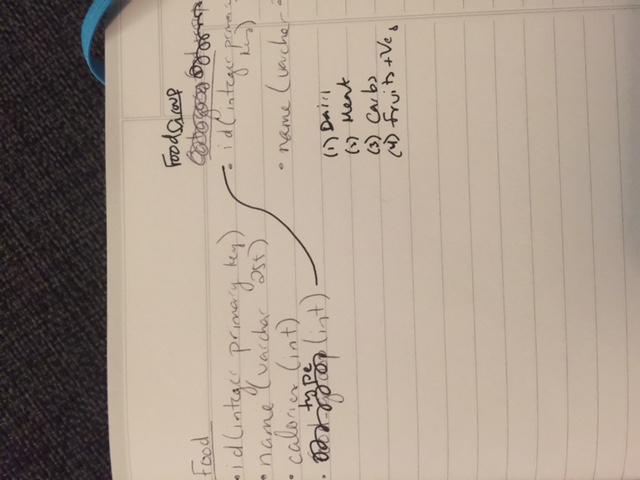 Food
• id (integer primary key)
• name (varchar 255)
• calories (int)
• type (int)
Food Group
• id (integer primary key)
• name (varcher 2
(1) Dairi
(2) Meat
(3) Carbs
(4) fruits + Veg